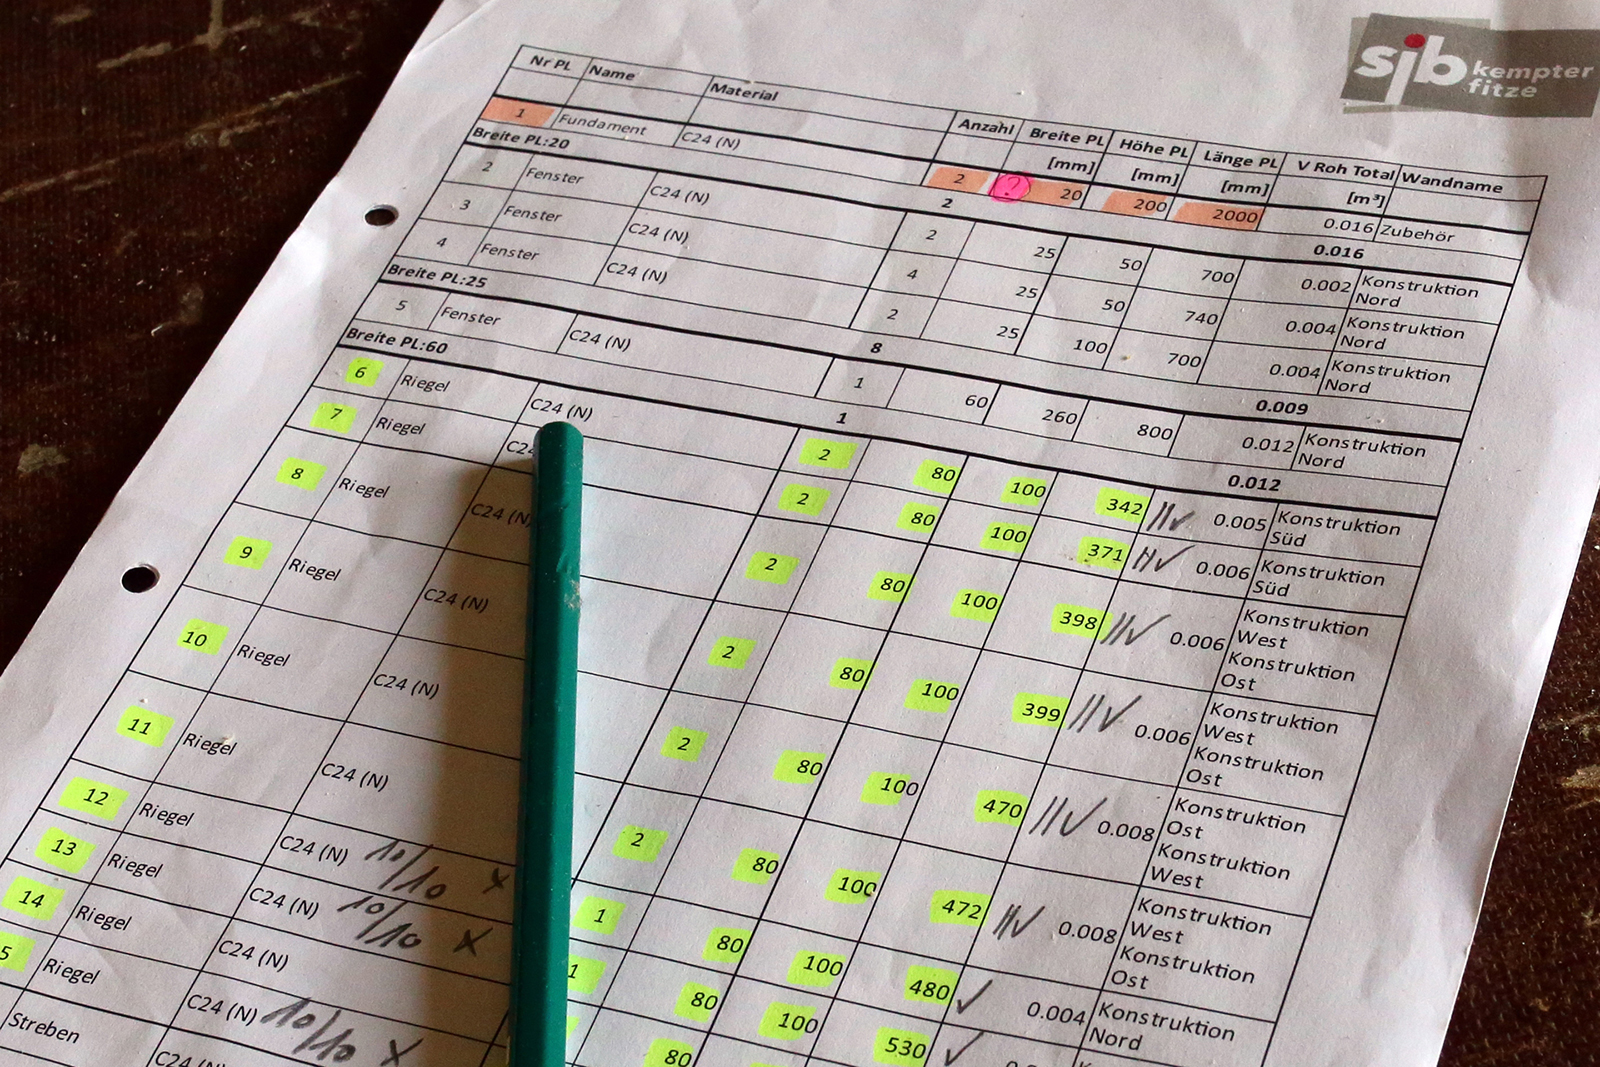 sjb kempter
fitze
Nr PL Name Material Anzahl Breite PL Höhe PL Länge PL V Roh Total Wandname
[mm] [mm] [mm] [m³]
1 Fundament C24 (N) 2 ? 20 200 2000 0.016 Zubehör
Breite PL:20 2 0.016
2 Fenster C24 (N) 2 25 50 700 0.002 Konstruktion
Nord
3 Fenster C24 (N) 4 25 50 740 0.004 Konstruktion
Nord
4 Fenster C24 (N) 2 25 100 700 0.004 Konstruktion
Nord
Breite PL:25 8 0.009
5 Fenster C24 (N) 1 60 260 800 0.012 Konstruktion
Nord
Breite PL:60 1 0.012
6 Riegel C24 (N) 2 80 100 342 0.005 Konstruktion
Süd
7 Riegel C24 2 80 100 371 0.006 Konstruktion
Süd
8 Riegel C24 (N) 2 80 100 398 0.006 Konstruktion
West
Konstruktion
Ost
9 Riegel C24 (N) 2 80 100 399 0.006 Konstruktion
West
Konstruktion
Ost
10 Riegel C24 (N) 2 80 100 470 0.008 Konstruktion
Ost
Konstruktion
West
11 Riegel C24 (N) 2 80 100 472 0.008 Konstruktion
West
Konstruktion
Ost
12 Riegel C24 (N) 10/10 x 1 80 100 480 0.004 Konstruktion
Nord
13 Riegel C24 (N) 10/10 x 1 80 100 530 Konstruktion
14 Riegel C24 (N) 80
5 Riegel C24 (N) 10/10 x
Streben C24 (N)